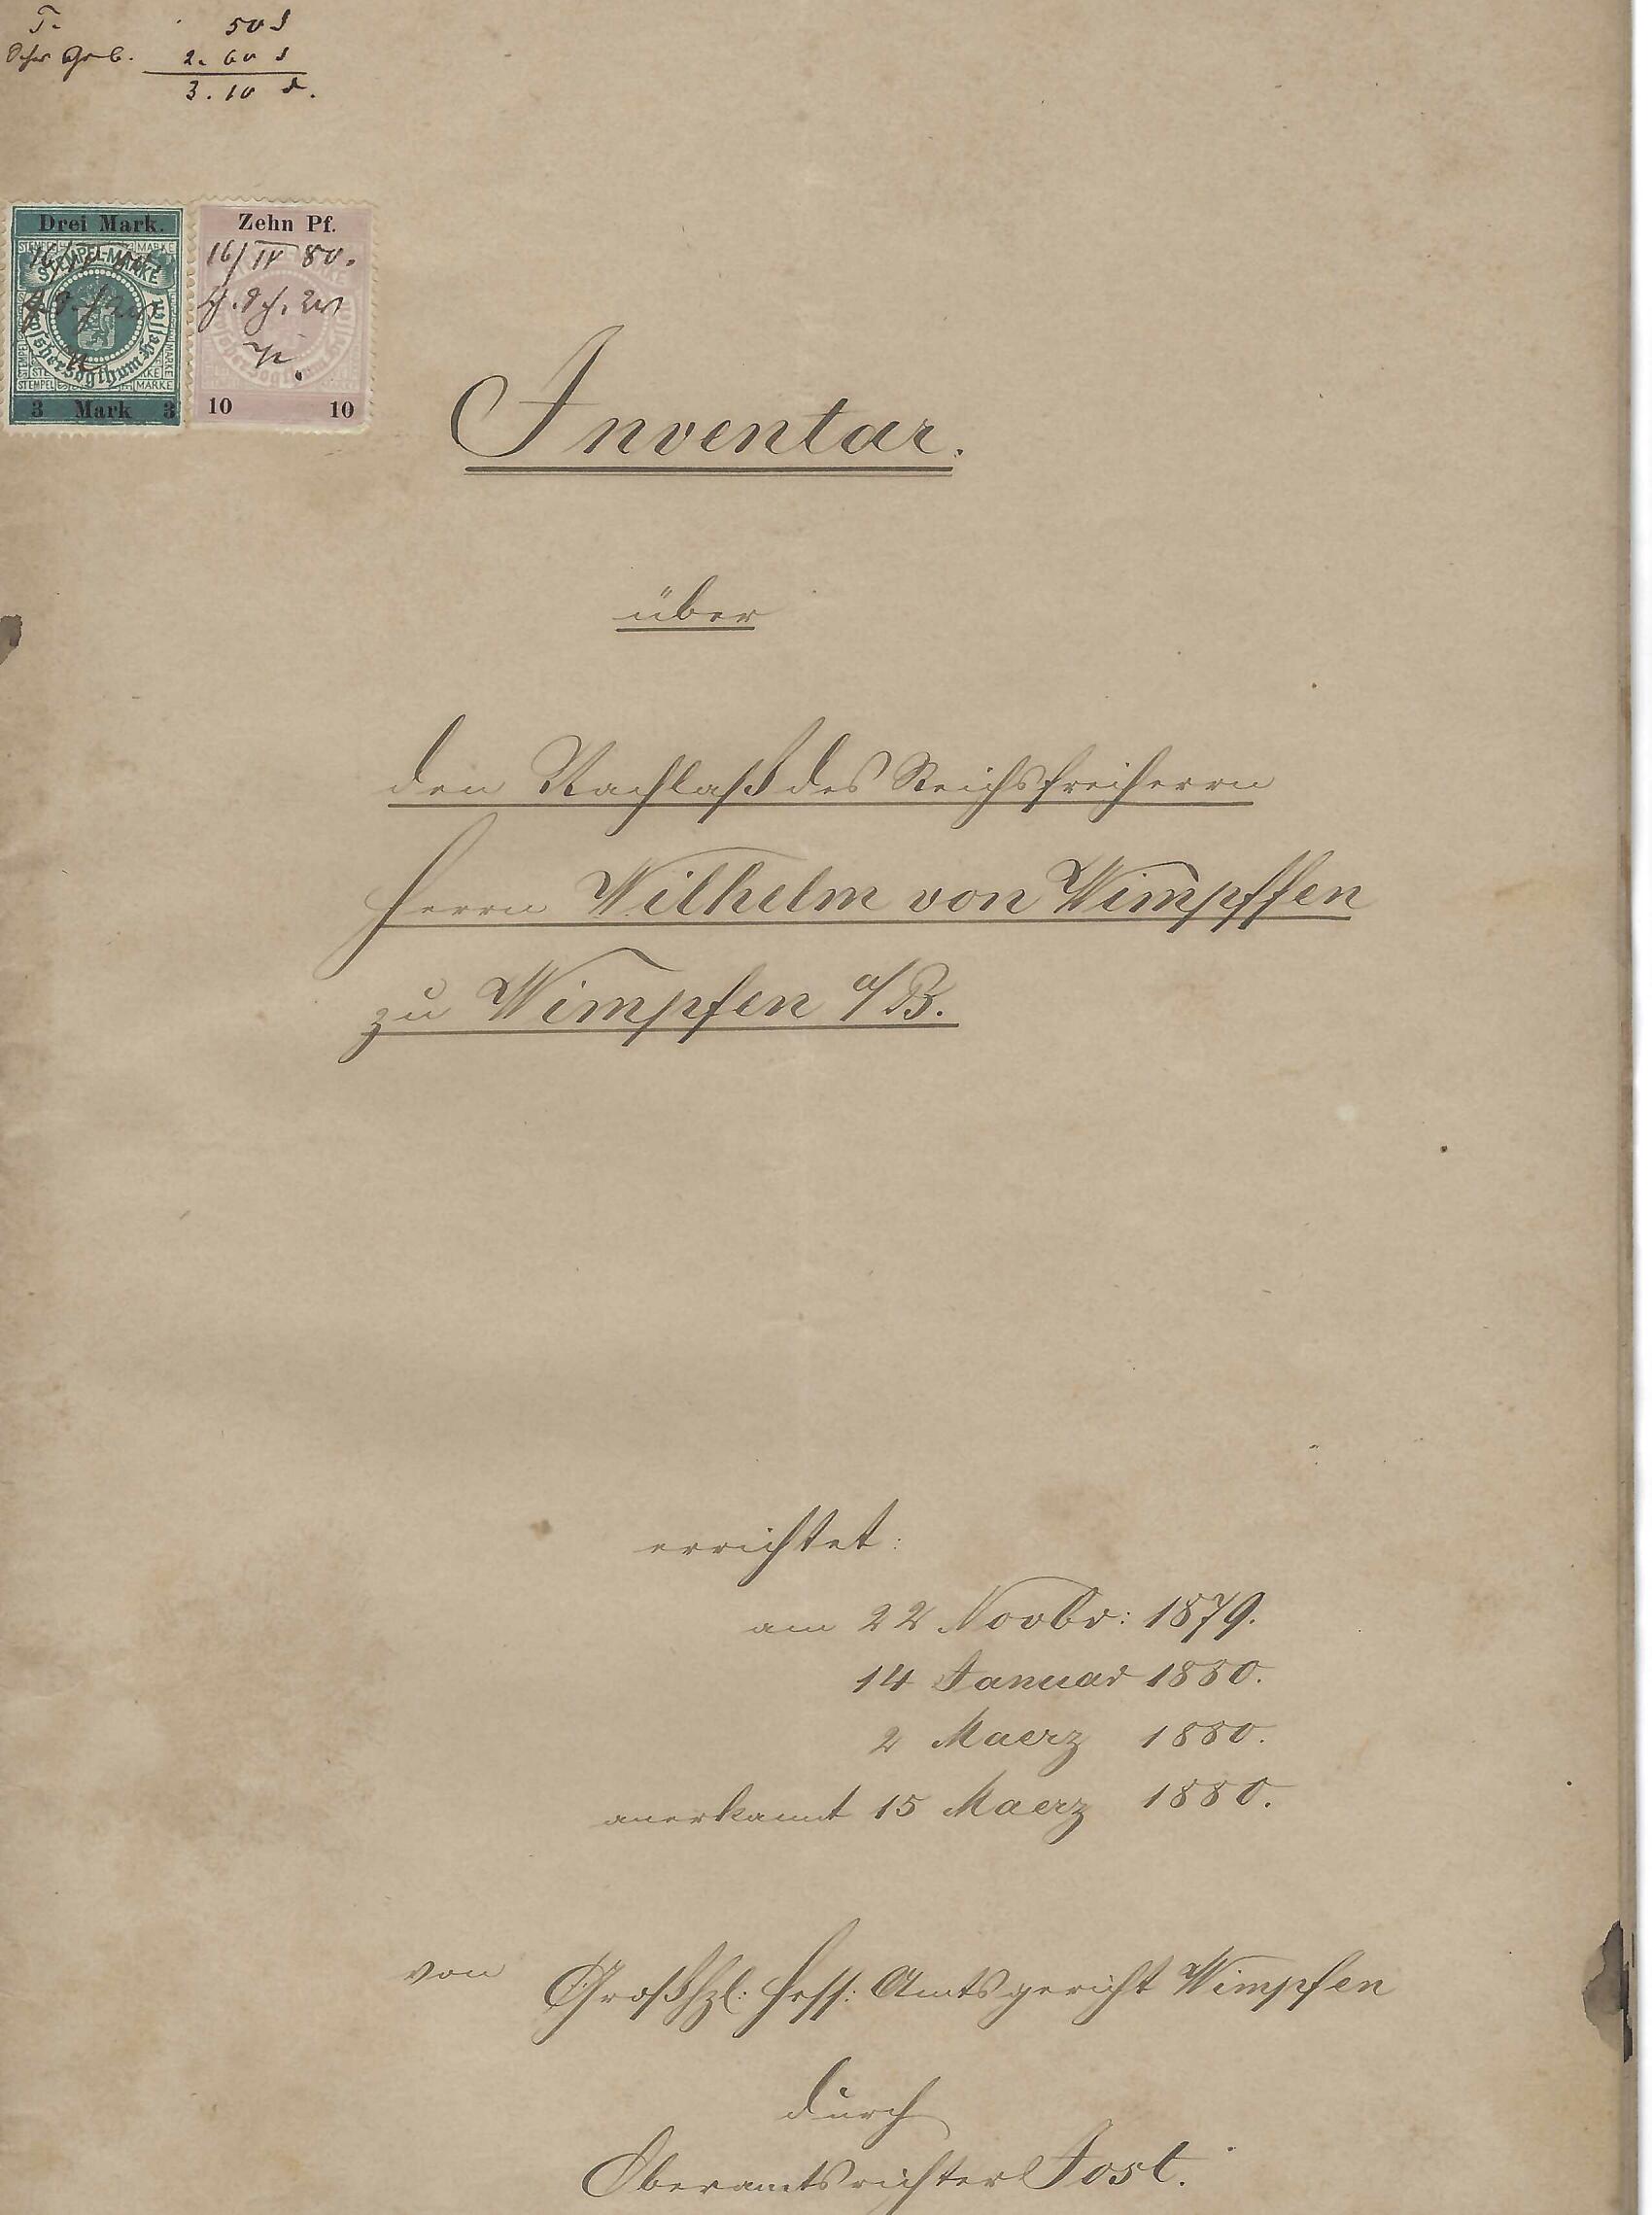 T. 50 ₰
Schr Geb. 2. 60 ₰
3. 10 ₰.
Drei Mark.
STEMPEL-MARKE
Grossherzogthum Hessen
3 Mark 3
Zehn Pf.
16/IV 80.
10 10
Inventar.
über
den Nachlaß des Reichsfreiherrn
Herrn Wilhelm von Wimpffen
zu Wimpfen a/B.
errichtet:
am 22 Novbr: 1879.
14 Januar 1880.
2 Maerz 1880.
anerkannt 15 Maerz 1880.
von Großhzl: Hess: Amtsgericht Wimpfen
durch
Oberamtsrichter Jost.